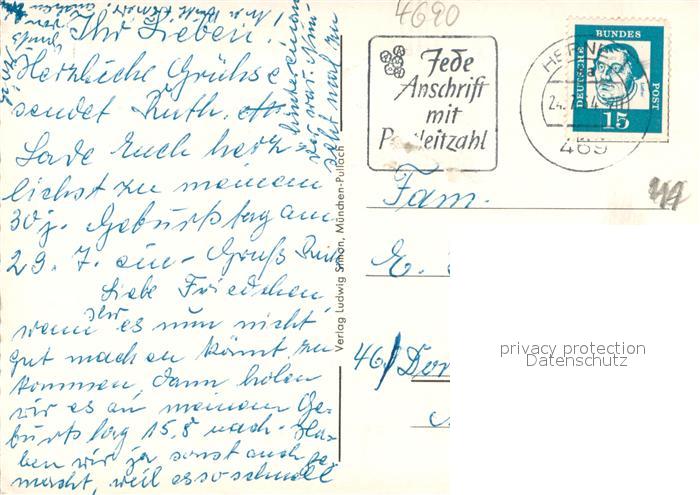 Ihr Lieben!
Herzliche Grüsse
sendet Ruth.
Lade Euch herz
lichst zu meinem
30 j. Geburtstag am
29. 7. ein - Gruß Ruth
Liebe Friedchen,
wenn Ihr es nun nicht
gut machen könnt zu
kommen, dann holen
wir es an meinem Ge-
burtstag 15.8 nach. Ha-
ben wir ja sonst auch ge
macht, weil es so schnell
hintereinan
Verlag Ludwig Simon, München-Pullach
4690
Jede
Anschrift
mit
Postleitzahl
HERNE
a
24.
469
DEUTSCHE BUNDESPOST
15
Fam.
E.
46/ Dor
privacy protection
Datenschutz